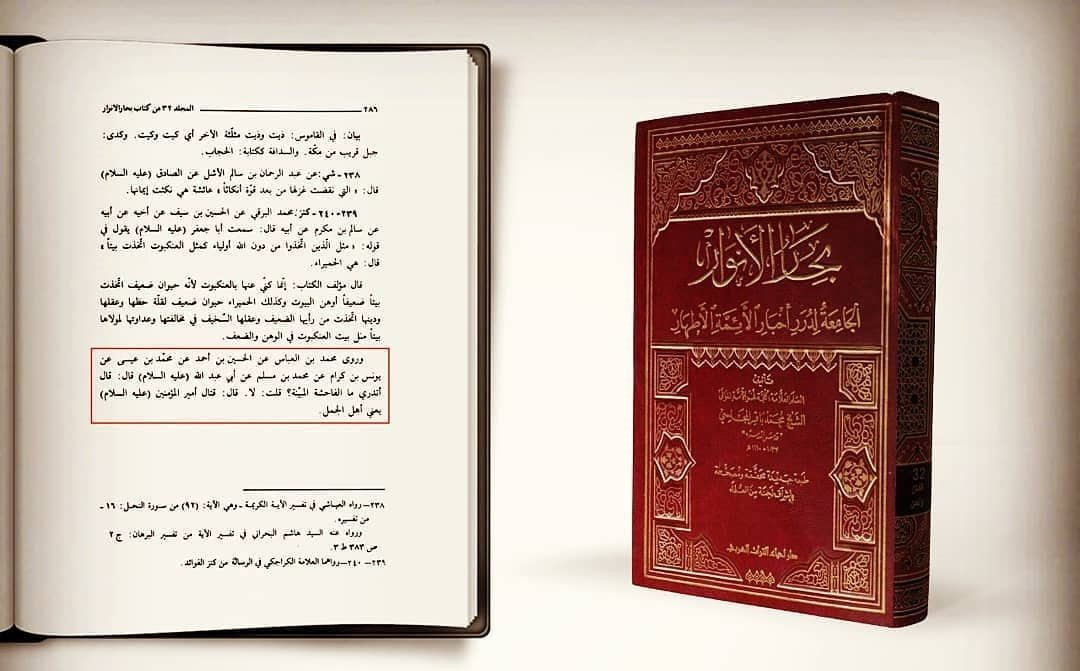 ٢٨٦ المجلد ٣٢ من كتاب بحار الانوار
بيان: في القاموس: ذيت وذيت مثلّثة الآخر أي كيت وكيت. وكدى:
جبل قريب من مكّة. والسدافة ككتابة: الحجاب.
٢٣٨ - شي: عن عبد الرحمان بن سالم الأشل عن الصادق (عليه السلام)
قال: « التي نقضت غزلها من بعد قوّة أنكاثاً » عائشة هي نكثت إيمانها.
٢٣٩-٢٤٠ - كنز: محمد البرقي عن الحسين بن سيف عن أخيه عن أبيه
عن سالم بن مكرم عن أبيه قال: سمعت أبا جعفر (عليه السلام) يقول في
قوله: « مثل الّذين اتّخذوا من دون الله أولياء كمثل العنكبوت اتّخذت بيتاً »
قال: هي الحميراء.
قال مؤلف الكتاب: إنّما كنّي عنها بالعنكبوت لأنّه حيوان ضعيف اتّخذت
بيتاً ضعيفاً أوهن البيوت وكذلك الحميراء حيوان ضعيف لقلّة حظها وعقلها
ودينها اتّخذت من رأيها الضعيف وعقلها السّخيف في مخالفتها وعداوتها لمولاها
بيتاً مثل بيت العنكبوت في الوهن والضعف.
وروى محمد بن العباس عن الحسين بن أحمد عن محمّد بن عيسى عن
يونس بن كرام عن محمد بن مسلم عن أبي عبد الله (عليه السلام) قال: قال
أتدري ما الفاحشة المبيّنة؟ قلت: لا. قال: قتال أمير المؤمنين (عليه السلام)
يعني أهل الجمل.
٢٣٨ – رواه العياشي في تفسير الآية الكريمة - وهي الآية: (٩٢) من سورة النحل: ١٦ -
من تفسيره.
ورواه عنه السيد هاشم البحراني في تفسير الآية من تفسير البرهان: ج ٢
ص ٣٨٣ ط ٣.
٢٣٩ – ٢٤٠ – رواهما العلامة الكراجكي في الرسالة من كنز الفوائد.
بحار الأنوار
الجامعة لدرر أخبار الأئمة الأطهار
تأليف
العلم العلامة الحجة فخر الأمة المولى
الشيخ محمد باقر المجلسي
١٠٣٧ - ١١١٠ هـ
طبعة جديدة محققة ومصححة
بإشراف لجنة من
دار إحياء التراث العربي
32